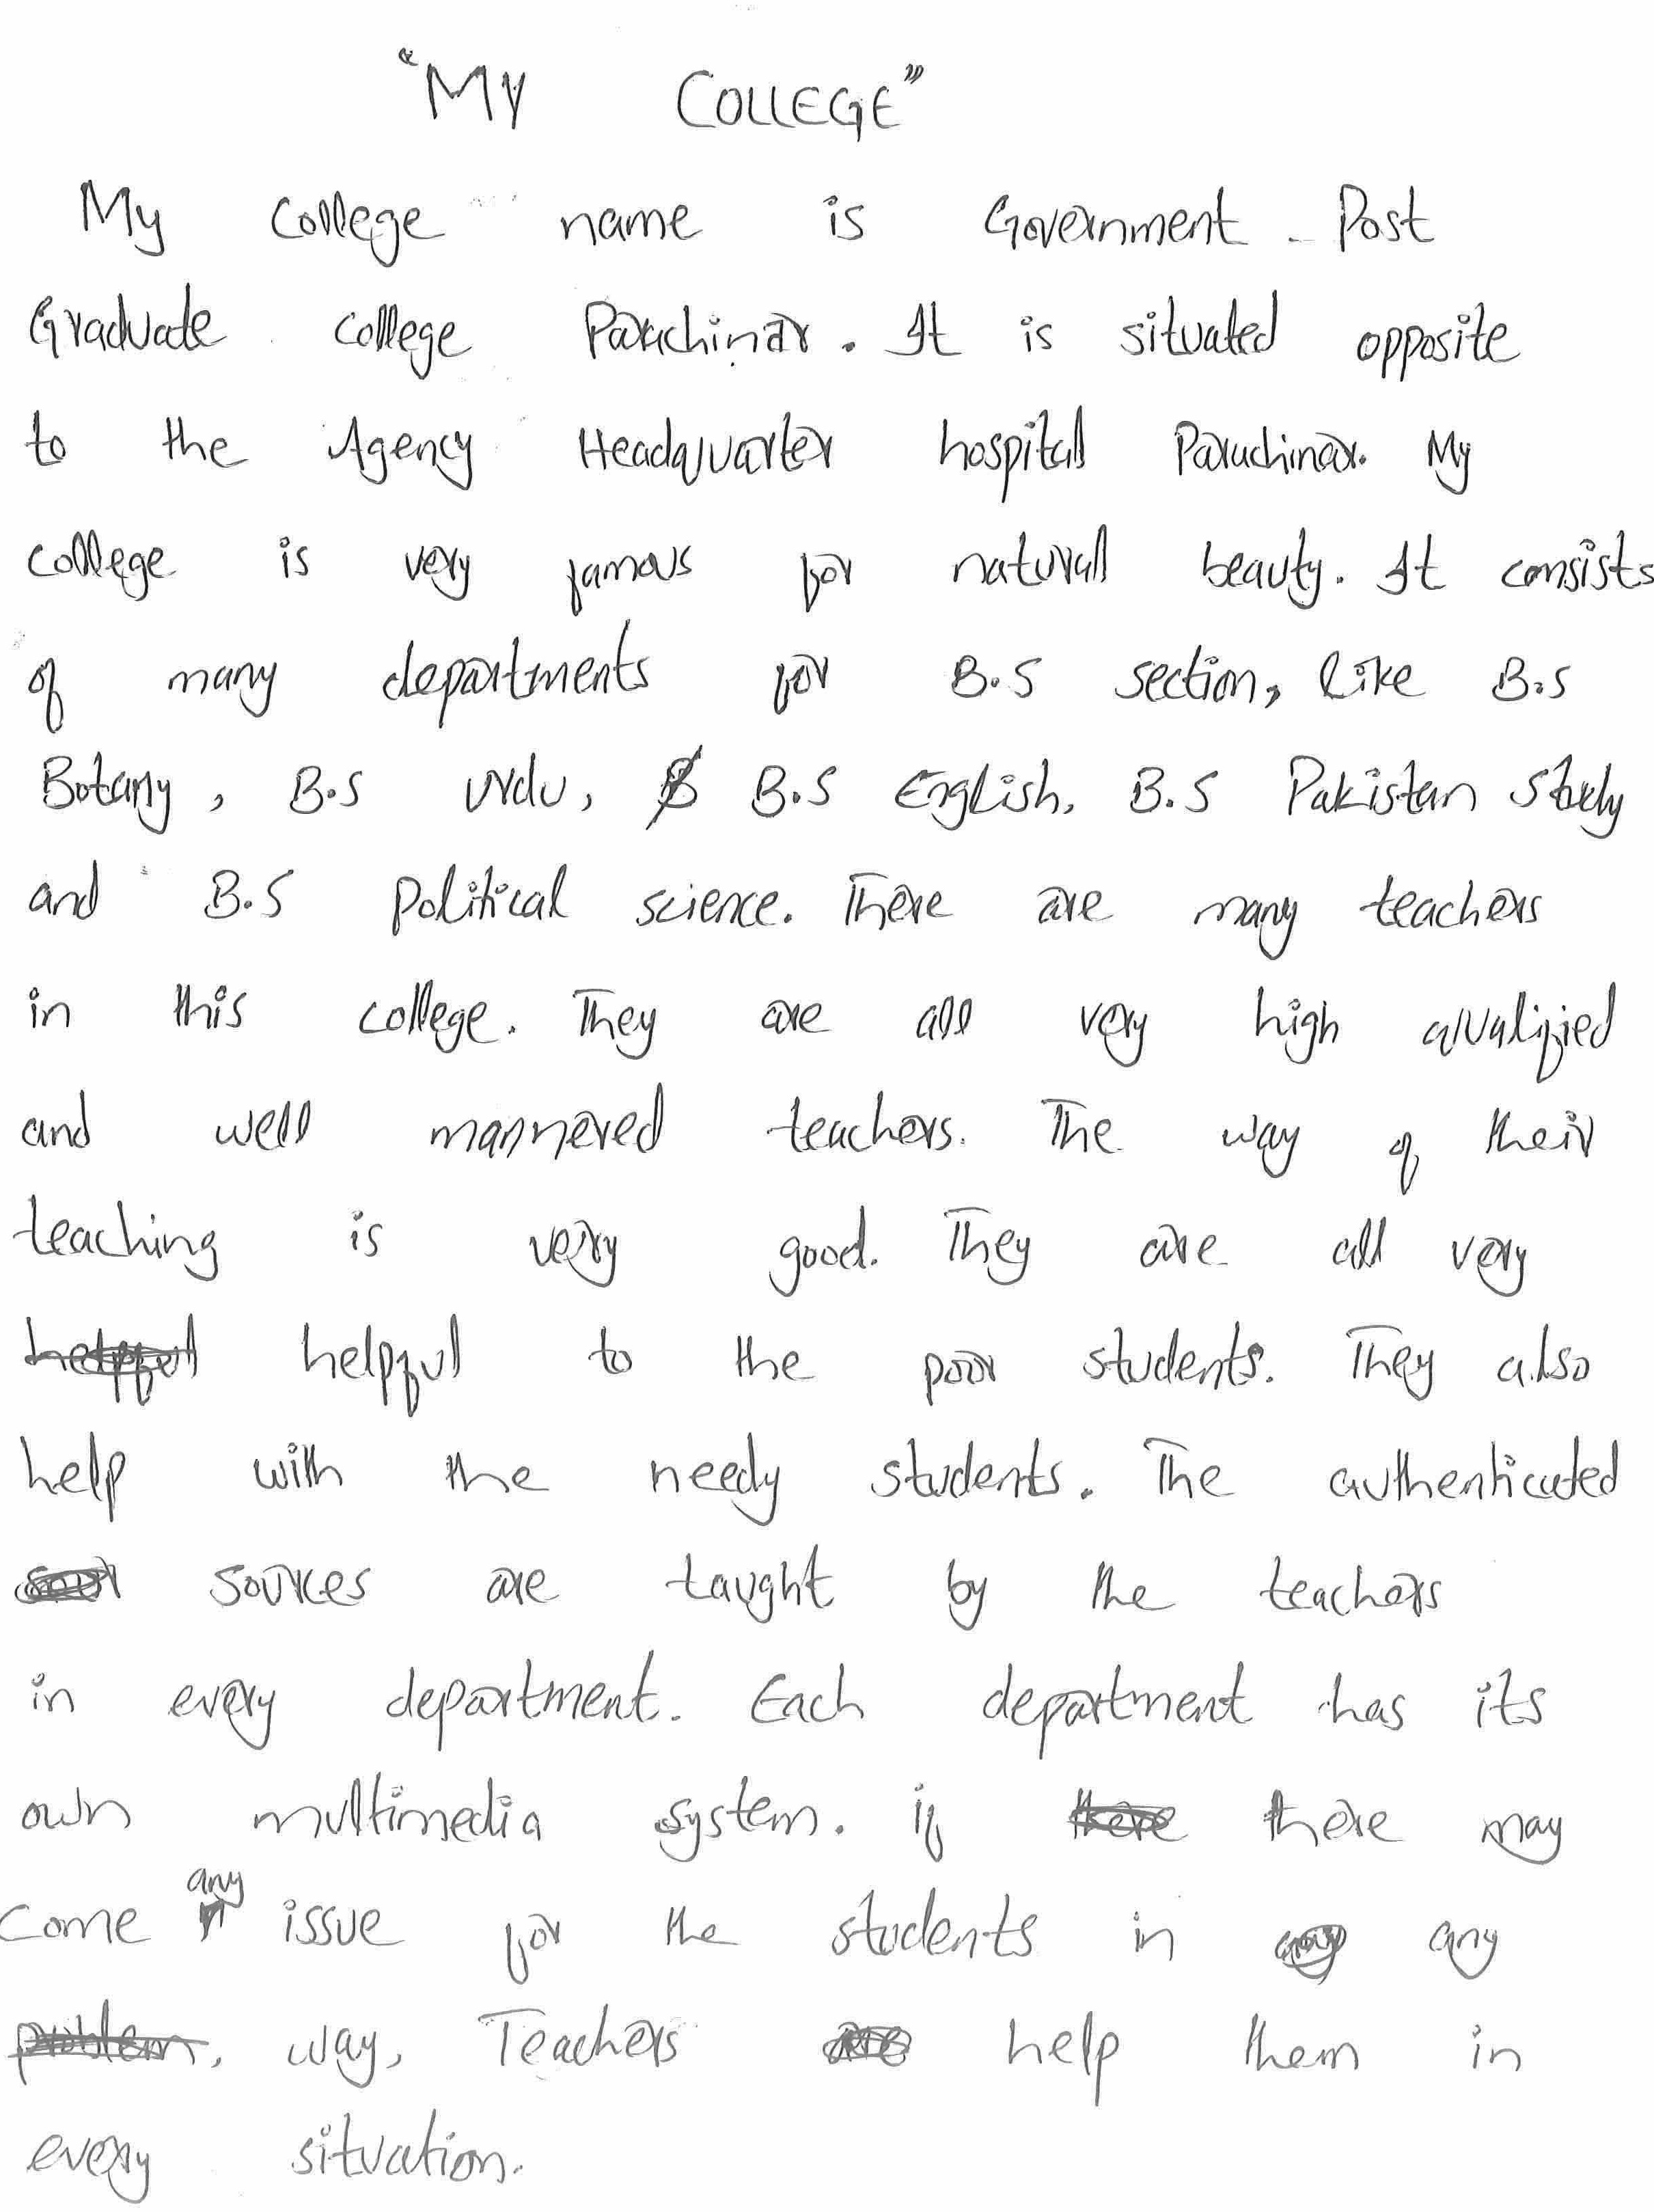 "MY COLLEGE"
My College name is Government Post
Graduate college Parachinar. It is situated opposite
to the Agency Headquarter hospital Parachinar. My
college is very famous for natural beauty. It consists
of many departments for B.S section, like B.S
Botany, B.S Urdu, B.S English, B.S Pakistan study
and B.S Political science. There are many teachers
in this college. They are all very high qualified
and well mannered teachers. The way of their
teaching is very good. They are all very
helpful to the poor students. They also
help with the needy students. The authenticated
sources are taught by the teachers
in every department. Each department has its
own multimedia system. if there may
come any issue for the students in any
way, Teachers help them in
every situation.